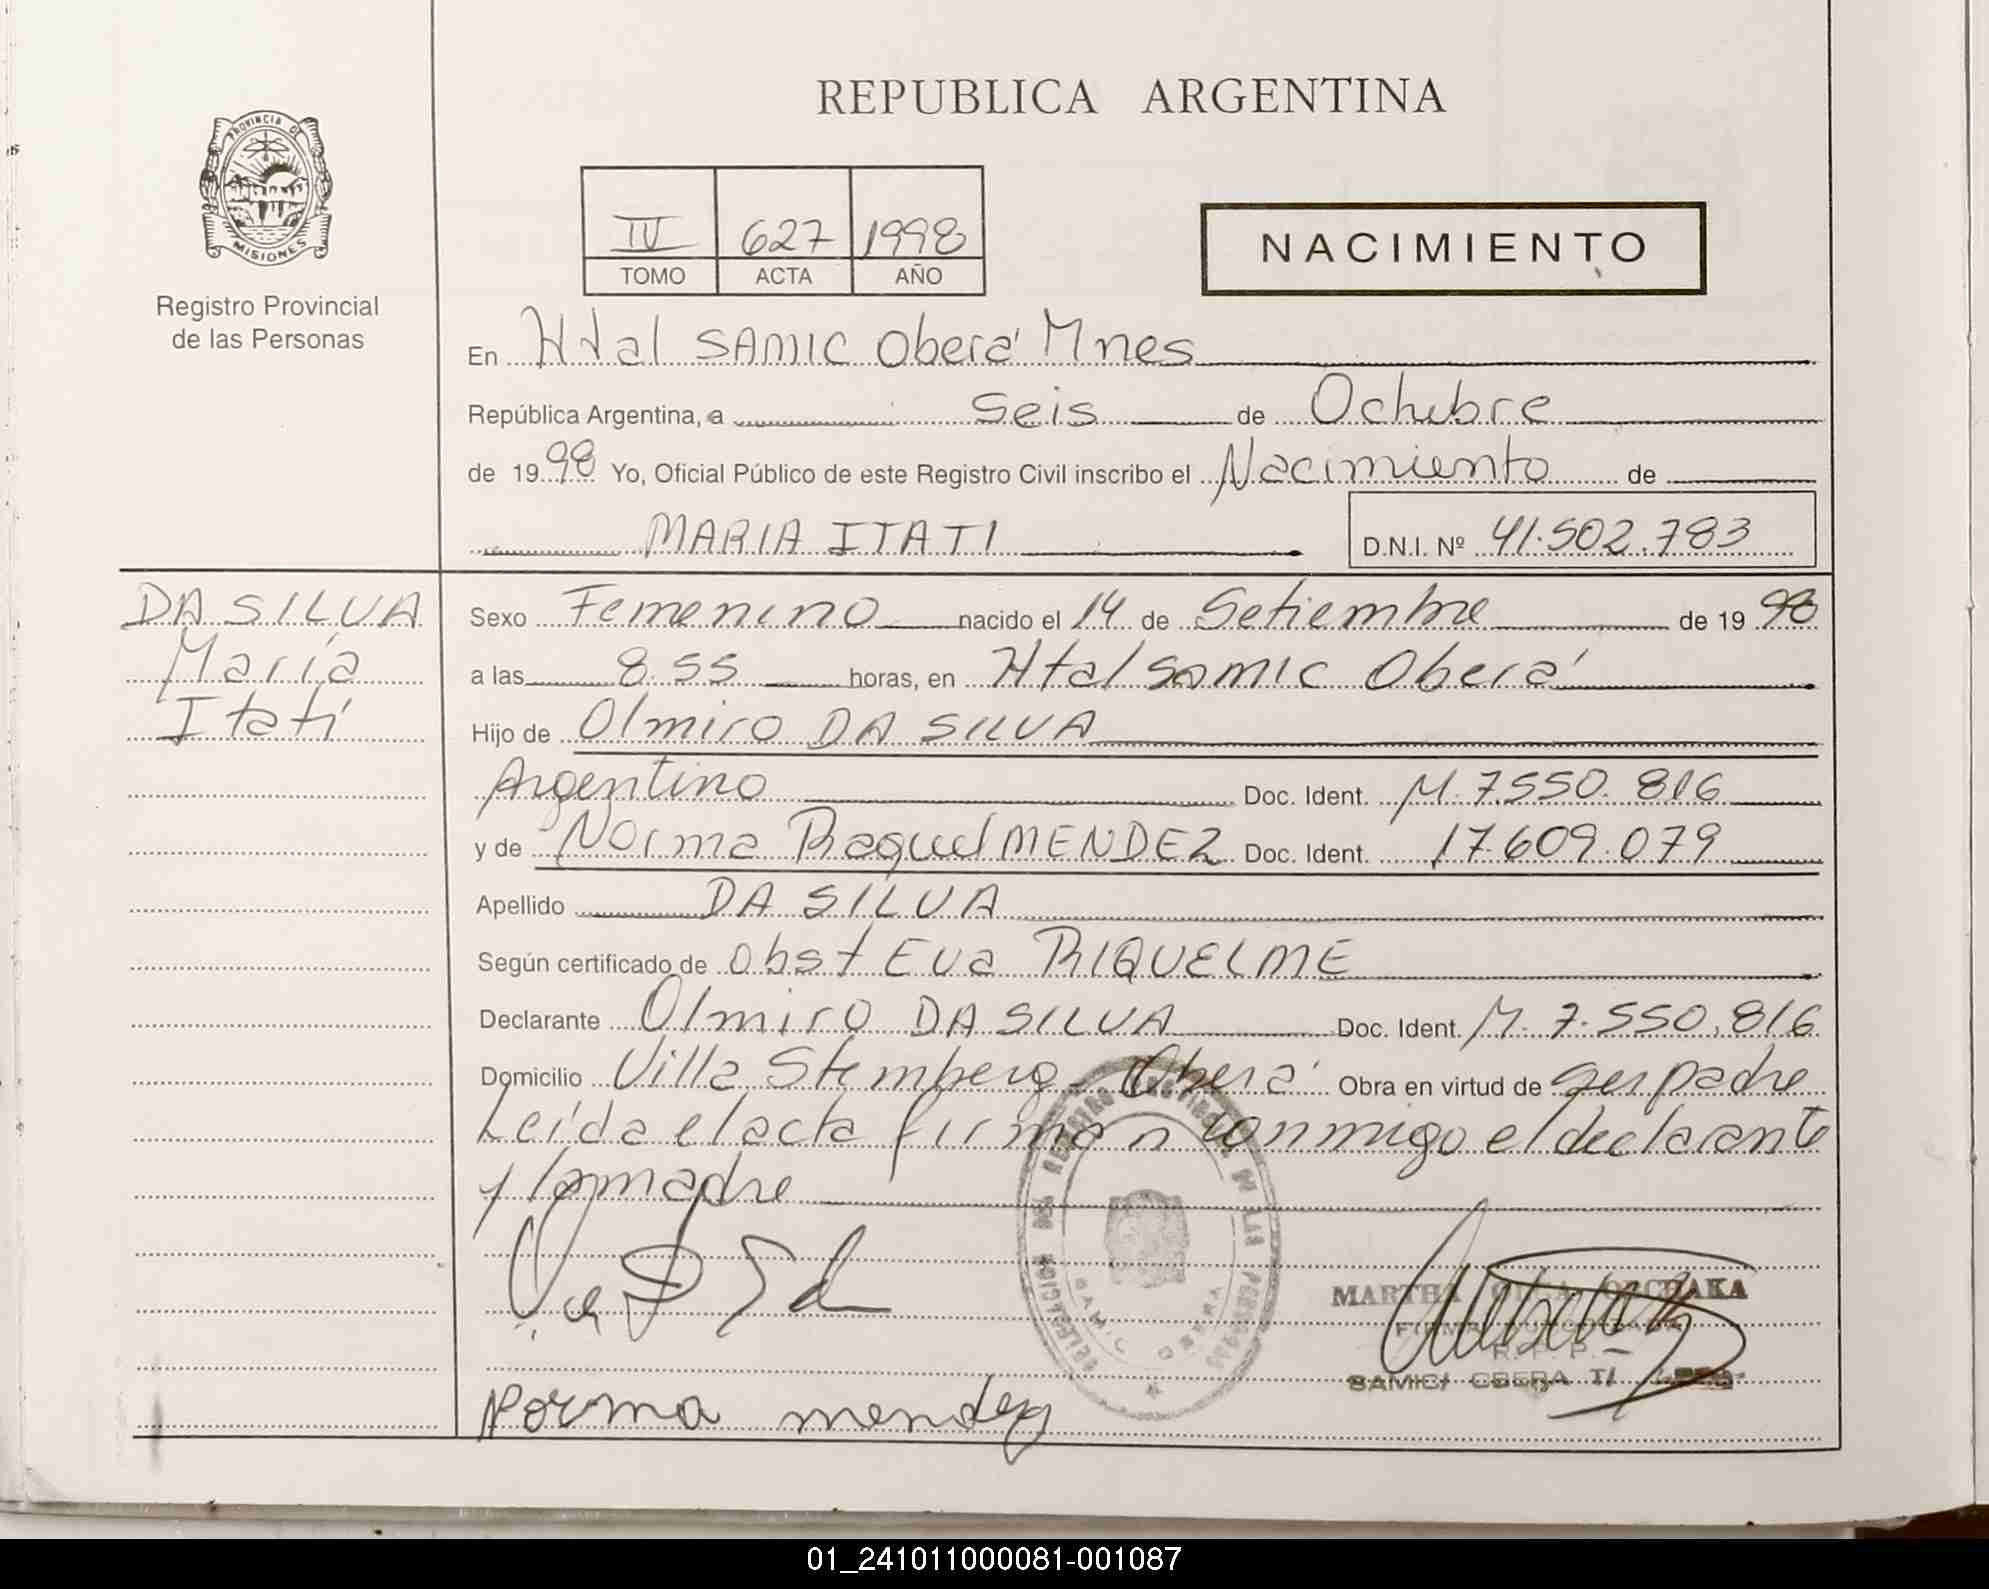 REPUBLICA ARGENTINA
PROVINCIA DE
MISIONES
Registro Provincial
de las Personas
IV 627 1998
TOMO ACTA AÑO
NACIMIENTO
En Htal SAMIC Oberá Mnes
República Argentina, a Seis de Octubre
de 1998 Yo, Oficial Público de este Registro Civil inscribo el Nacimiento de
MARIA ITATI D.N.I. Nº 41.502.783
DA SILVA
María
Itatí
Sexo Femenino nacido el 14 de Setiembre de 1998
a las 8.55 horas, en Htal Samic Oberá
Hijo de Olmiro DA SILVA
Argentino Doc. Ident. M. 7.550.816
y de Norma Raquel MENDEZ Doc. Ident. 17.609.079
Apellido DA SILVA
Según certificado de Obst Eva RIQUELME
Declarante Olmiro DA SILVA Doc. Ident. M. 7.550.816
Domicilio Villa Stemberg - Oberá Obra en virtud de ser padre
Leída el acta firman conmigo el declarante
y la madre
DELEGACION DEL REGISTRO DE LAS PERSONAS
SAMIC OBERA
MARTHA OLGA
R. P. P.
SAMIC/ OBERA
Norma mendez
01_241011000081-001087